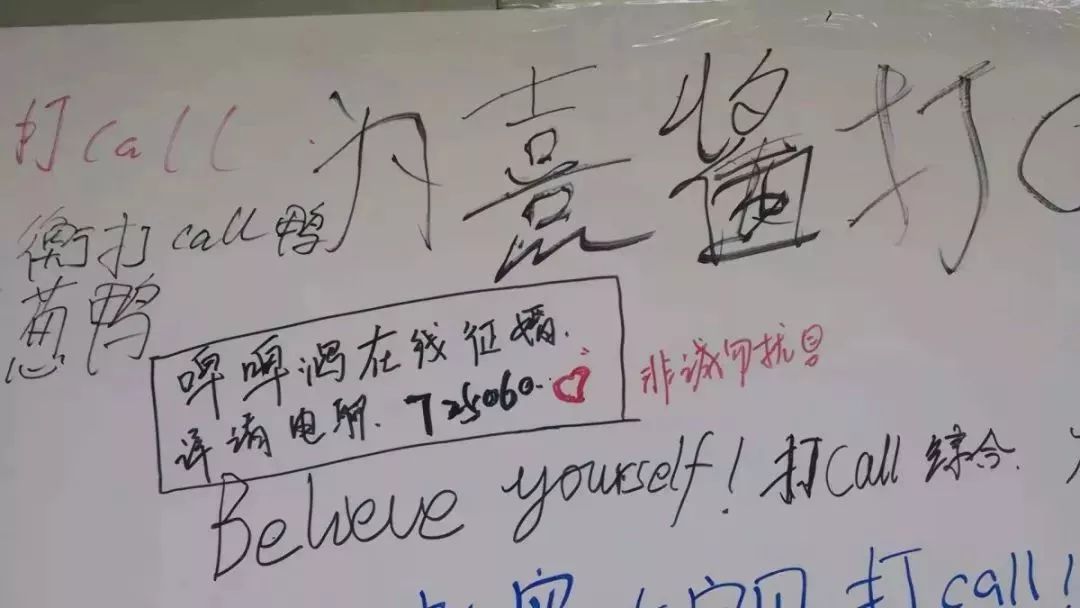 打call
为喜酱打
打call鸭
葱鸭
啤啤鸿在线征婚.
详请电联. 725060.
非诚勿扰
Believe yourself! 打call 综合.
打call!